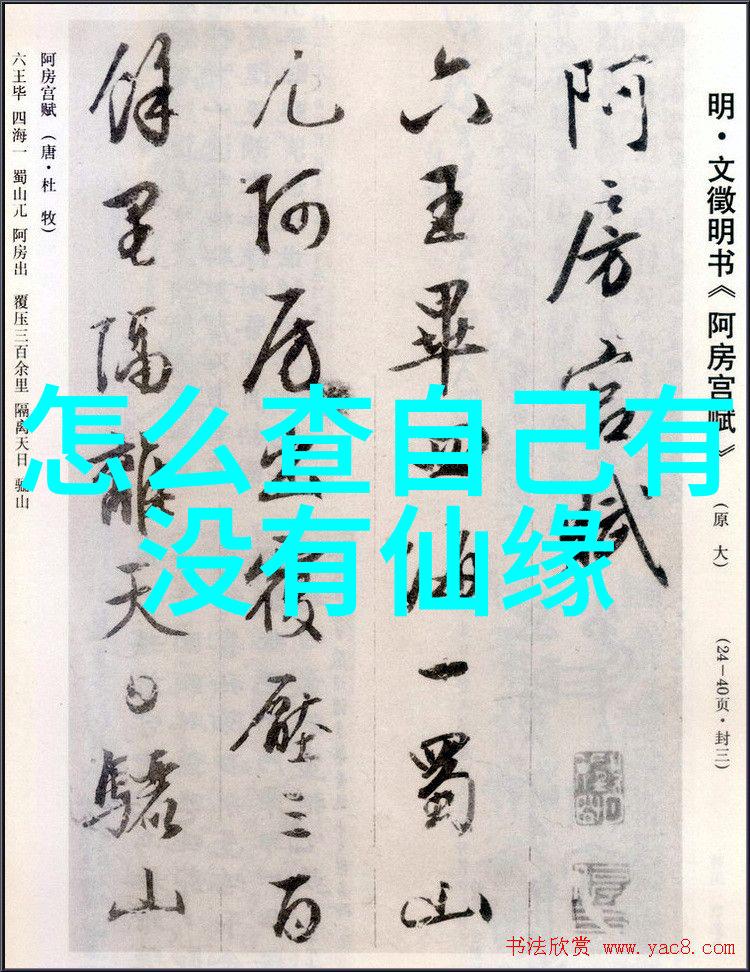 明·文徵明书《阿房宫赋》(原大) (24—40页·封三)
阿房宫赋
六王畢四海一蜀山
兀阿房出覆壓三百
餘里隔離天日驪山
阿房宫赋 (唐·杜 牧)
六王毕 四海一 蜀山兀 阿房出 覆压三百余里 隔离天日 骊山
怎么查自己有
没有仙缘
书法欣赏 www.yac8.com